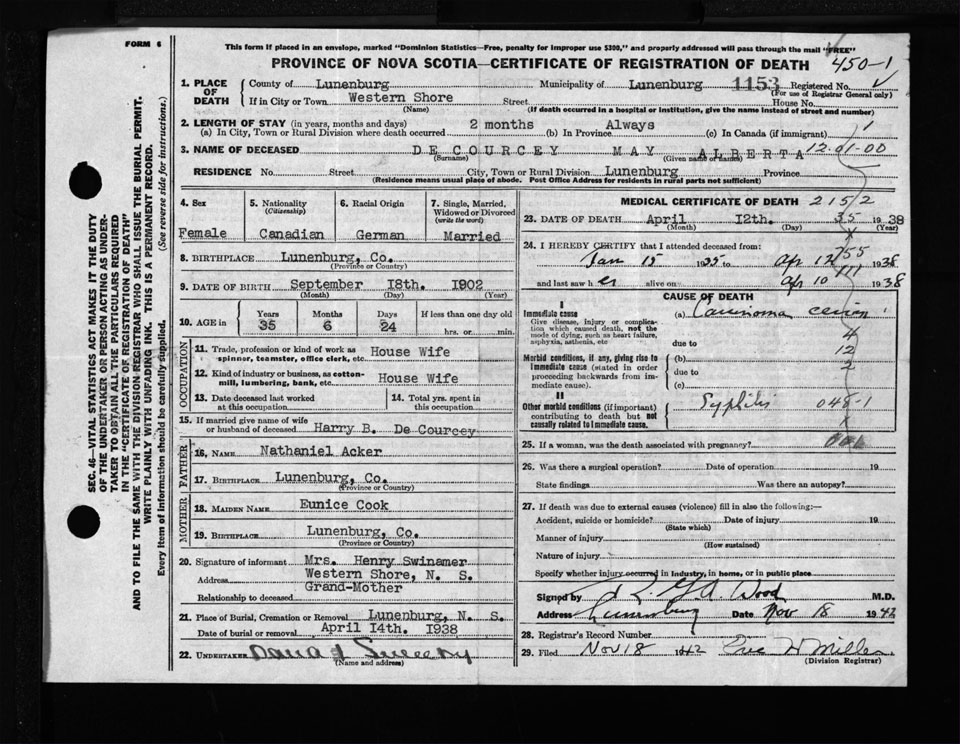 FORM 6
This form if placed in an envelope, marked "Dominion Statistics—Free, penalty for improper use $300," and properly addressed will pass through the mail "FREE"
PROVINCE OF NOVA SCOTIA—CERTIFICATE OF REGISTRATION OF DEATH
450-1
1. PLACE OF DEATH
County of Lunenburg Municipality of Lunenburg 1153 Registered No.
(For use of Registrar General only)
If in City or Town Western Shore Street House No.
(Name) (If death occurred in a hospital or institution, give the name instead of street and number)
2. LENGTH OF STAY (in years, months and days)
(a) In City, Town or Rural Division where death occurred 2 months (b) In Province Always (c) In Canada (if immigrant)
3. NAME OF DECEASED DE COURCEY MAY ALBERTA 12.01-00
(Surname) (Given name or names)
RESIDENCE No. Street City, Town or Rural Division Lunenburg Province
(Residence means usual place of abode. Post Office Address for residents in rural parts not sufficient)
4. Sex
Female
5. Nationality
(Citizenship)
Canadian
6. Racial Origin
German
7. Single, Married, Widowed or Divorced
(write the word)
Married
8. BIRTHPLACE Lunenburg, Co.
(Province or Country)
9. DATE OF BIRTH September I8th. I902
(Month) (Day) (Year)
10. AGE in
Years Months Days If less than one day old
35 6 24 hrs. or min.
OCCUPATION
11. Trade, profession or kind of work as spinner, teamster, office clerk, etc. House Wife
12. Kind of industry or business, as cotton-mill, lumbering, bank, etc. House Wife
13. Date deceased last worked at this occupation
14. Total yrs. spent in this occupation
15. If married give name of wife or husband of deceased Harry B. De Courcey
FATHER
16. NAME Nathaniel Acker
17. BIRTHPLACE Lunenburg, Co.
(Province or Country)
MOTHER
18. MAIDEN NAME Eunice Cook
19. BIRTHPLACE Lunenburg, Co.
(Province or Country)
20. Signature of informant Mrs. Henry Swinamer
Address Western Shore, N. S.
Relationship to deceased Grand-Mother
21. Place of Burial, Cremation or Removal Lunenburg, N. S.
Date of burial or removal April I4th. I938
22. UNDERTAKER
(Name and address)
MEDICAL CERTIFICATE OF DEATH 2152
23. DATE OF DEATH April I2th. 35 1938
(Month) (Day) (Year)
24. I HEREBY CERTIFY that I attended deceased from:
Jan 15 1935 to Apr 12 1938
and last saw her alive on Apr 10 1938
CAUSE OF DEATH
I
Immediate cause
Give disease, injury or complication which caused death, not the mode of dying, such as heart failure, asphyxia, asthenia, etc
(a) Carcinoma cervix
due to 4
12
Morbid conditions, if any, giving rise to immediate cause (stated in order proceeding backwards from immediate cause).
(b) 2
due to
(c)
II
Other morbid conditions (if important) contributing to death but not causally related to immediate cause.
Syphilis 048-1
25. If a woman, was the death associated with pregnancy?
26. Was there a surgical operation? Date of operation 19
State findings Was there an autopsy?
27. If death was due to external causes (violence) fill in also the following:
Accident, suicide or homicide? Date of injury 19
(State which)
Manner of injury
(How sustained)
Nature of injury
Specify whether injury occurred in industry, in home, or in public place
Signed by Wood M.D.
Address Lunenburg Date Nov 18 1942
28. Registrar's Record Number
29. Filed Nov 18 1942 Miller
(Division Registrar)
SEC. 46—VITAL STATISTICS ACT MAKES IT THE DUTY
OF THE UNDERTAKER OR PERSON ACTING AS UNDER-
TAKER TO OBTAIN ALL THE PARTICULARS REQUIRED
IN THE "CERTIFICATE OF REGISTRATION OF DEATH"
AND TO FILE THE SAME WITH THE DIVISION REGISTRAR WHO SHALL ISSUE THE BURIAL PERMIT.
WRITE PLAINLY WITH UNFADING INK. THIS IS A PERMANENT RECORD.
Every item of Information should be carefully supplied. (See reverse side for instructions.)